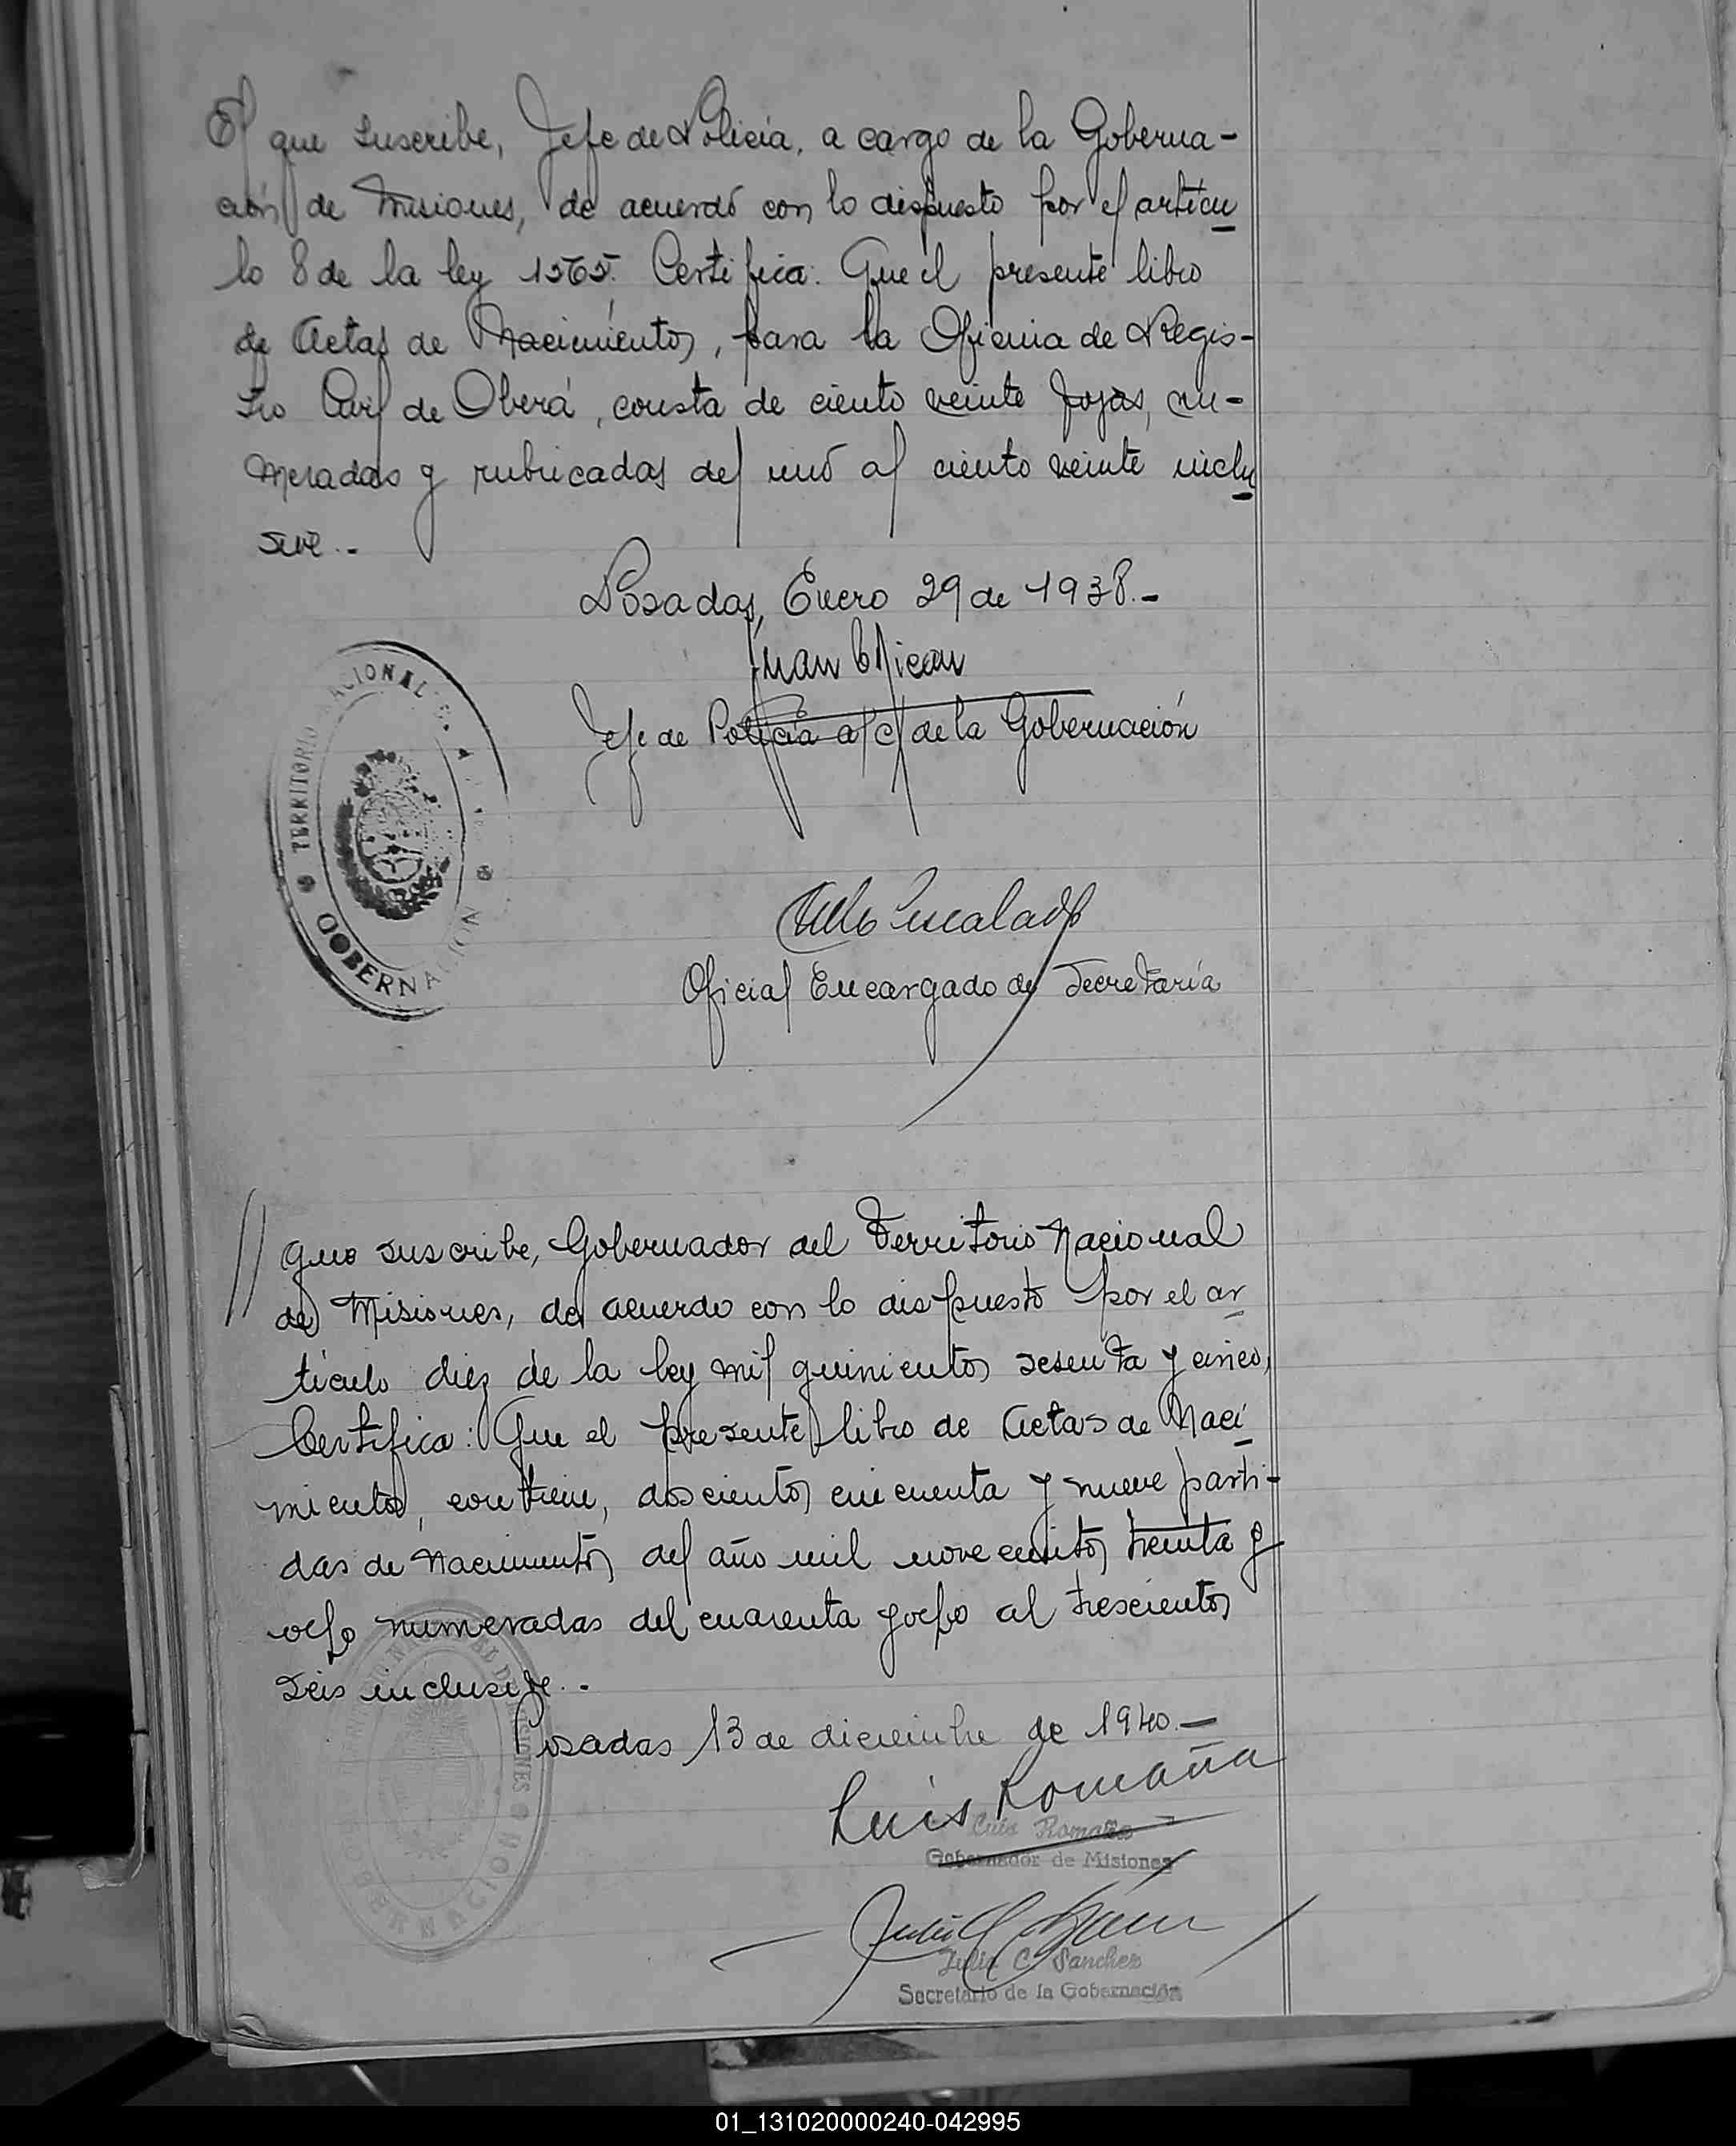 El que suscribe, Jefe de Policía, a cargo de la Goberna-
ción de Misiones, de acuerdo con lo dispuesto por el artícu
lo 8 de la ley 1565. Certifica: Que el presente libro
de Actas de Nacimientos, para la Oficina de Regis-
tro Civil de Oberá, consta de ciento veinte fojas, nu-
meradas y rubricadas del uno al ciento veinte inclu
sive.-
Posadas, Enero 29 de 1938.-
Juan
Jefe de Policía a/c/ de la Gobernación
TERRITORIO NACIONAL
GOBERNACION
Oficial Encargado de Secretaría
// que suscribe, Gobernador del Territorio Nacional
de Misiones, de acuerdo con lo dispuesto por el ar
tículo diez de la ley mil quinientos sesenta y cinco,
Certifica: Que el presente libro de Actas de Naci
mientos, contiene, doscientos cincuenta y nueve parti-
das de Nacimientos del año mil novecientos treinta y
ocho numeradas del cuarenta y ocho al trescientos
seis inclusive.-
Posadas 13 de diciembre de 1940.-
Luis Romaña
Luis Romaña
Gobernador de Misiones
Julio C. Sanchez
Secretario de la Gobernación
GOBERNACION
01_131020000240-042995